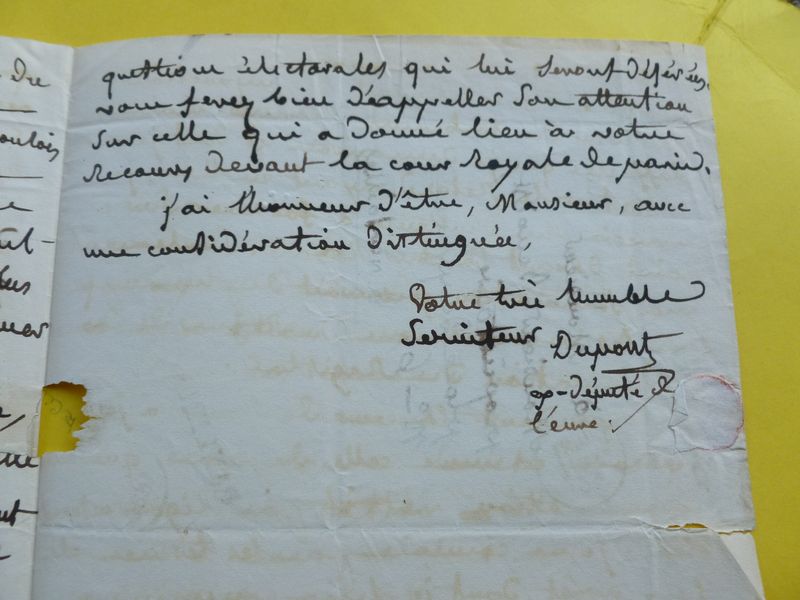 question électorales qui lui seront déférées.
vous ferez bien d'appeller son attention
sur celle qui a donné lieu à votre
recours devant la cour royale de paris.
j'ai l'honneur d'être, Monsieur, avec
une considération distinguée,
Votre très humble
Serviteur Dupont
ex-député de
l'eure.